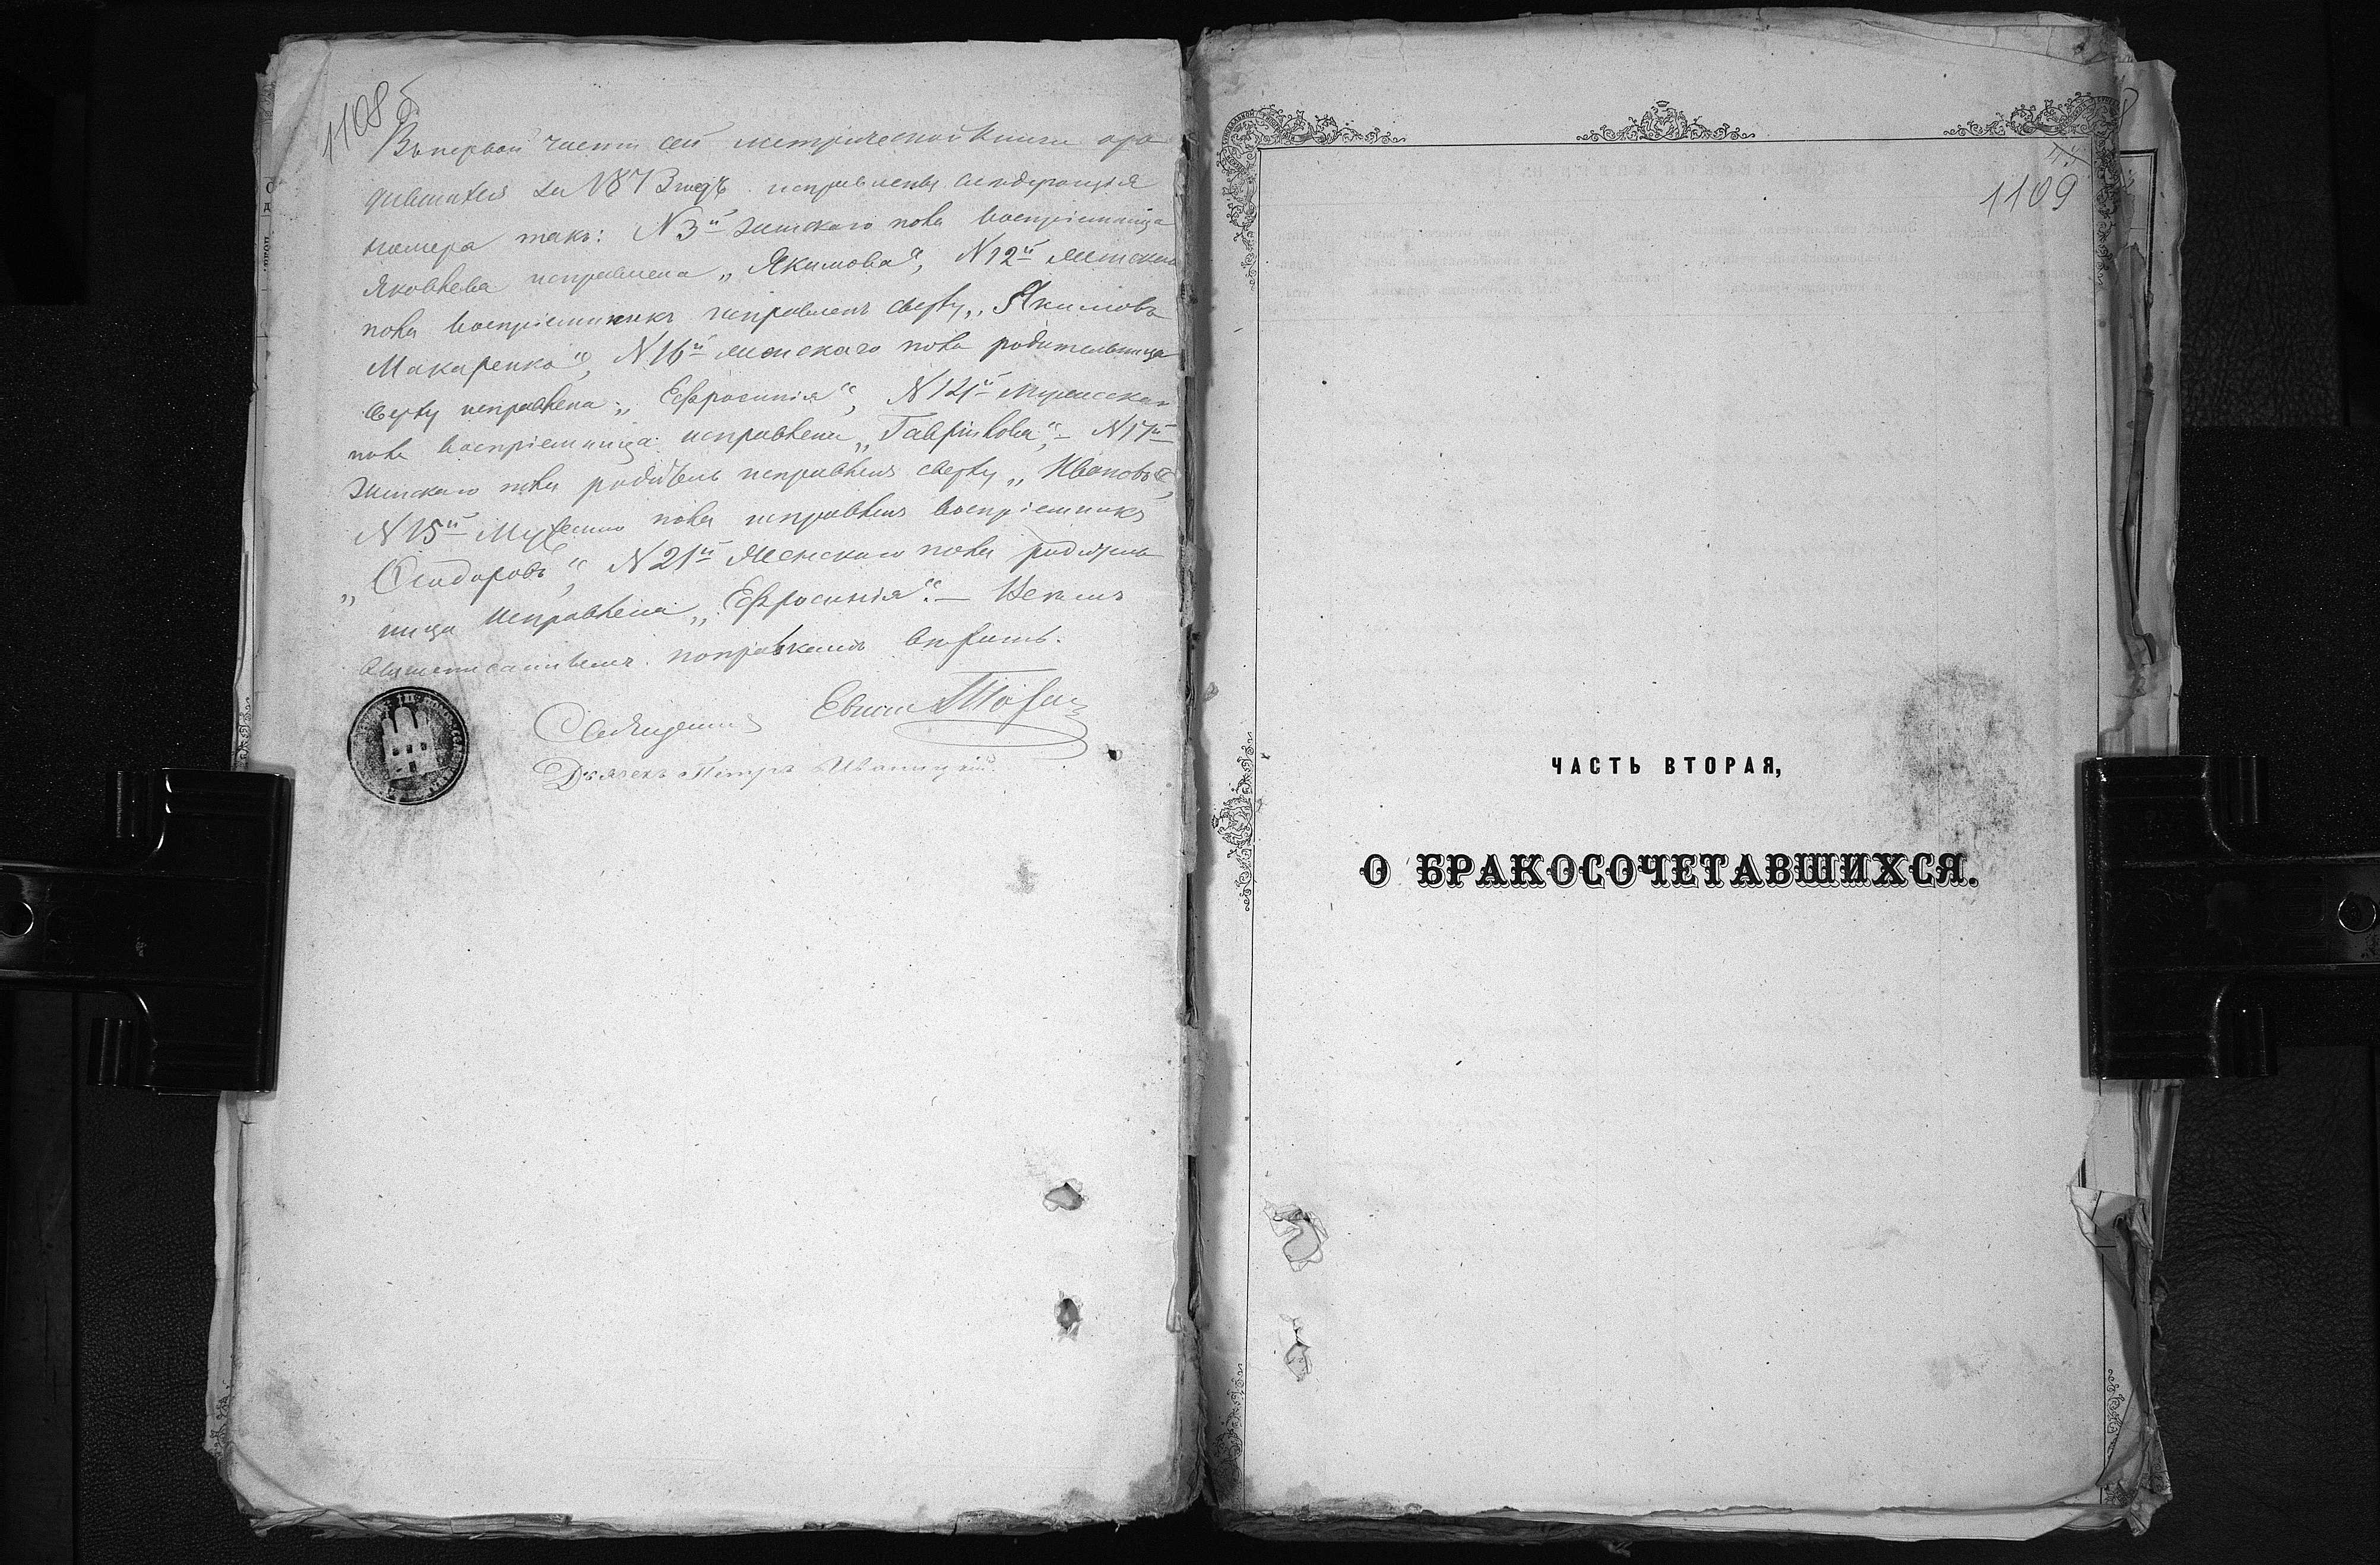 1108 б
Въ первой части сей метрической книги о ро
дившихся за 1873 годъ исправлены слѣдующія
номера такъ: N 3й женскаго пола воспріемница
Яковлева исправлена „Якимова“, N 12й женскаго
пола воспріемникъ исправленъ сверху „Якимовъ
Макаренко“, N 16й женскаго пола родительница
сверху исправлена „Ефросинія“, N 121й мужескаго
пола воспріемница исправлена „Гаврилова“, – N 17й
женскаго пола родитель исправленъ сверху „Ивановъ“,
N 15й пола исправленъ воспріемникъ
„Ѳеодоровъ“, N 21й женскаго пола родитель
ница исправлена „Ефросинія“. –
поправкамъ вѣрить.
Священникъ
Дьячекъ Петръ Иваницкій
1109
ЧАСТЬ ВТОРАЯ,
О БРАКОСОЧЕТАВШИХСЯ.